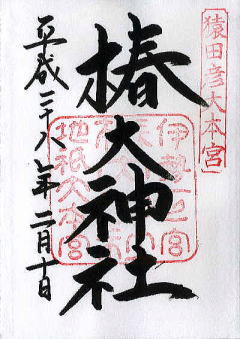 猿田彦大本宮
椿大神社
伊勢一之宮
地祇大本宮
平成二十八年二月十日